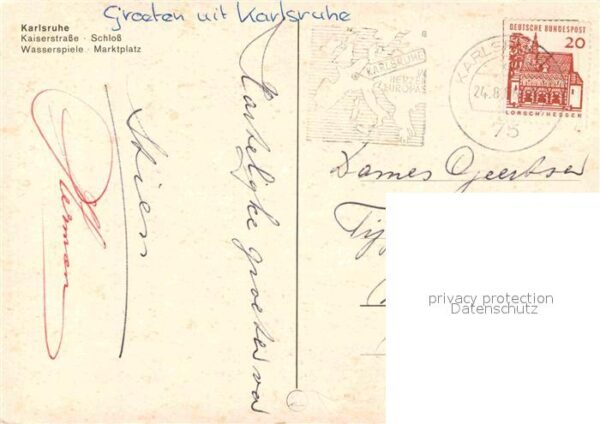 Groeten uit Karlsruhe
Karlsruhe
Kaiserstraße · Schloß
Wasserspiele · Marktplatz
Hartelijke groeten van
Stien
Herman
KARLSRUHE
HERZ
EUROPAS
KARLS
24.8.
75
DEUTSCHE BUNDESPOST
20
LORSCH/HESSEN
Dames
privacy protection
Datenschutz